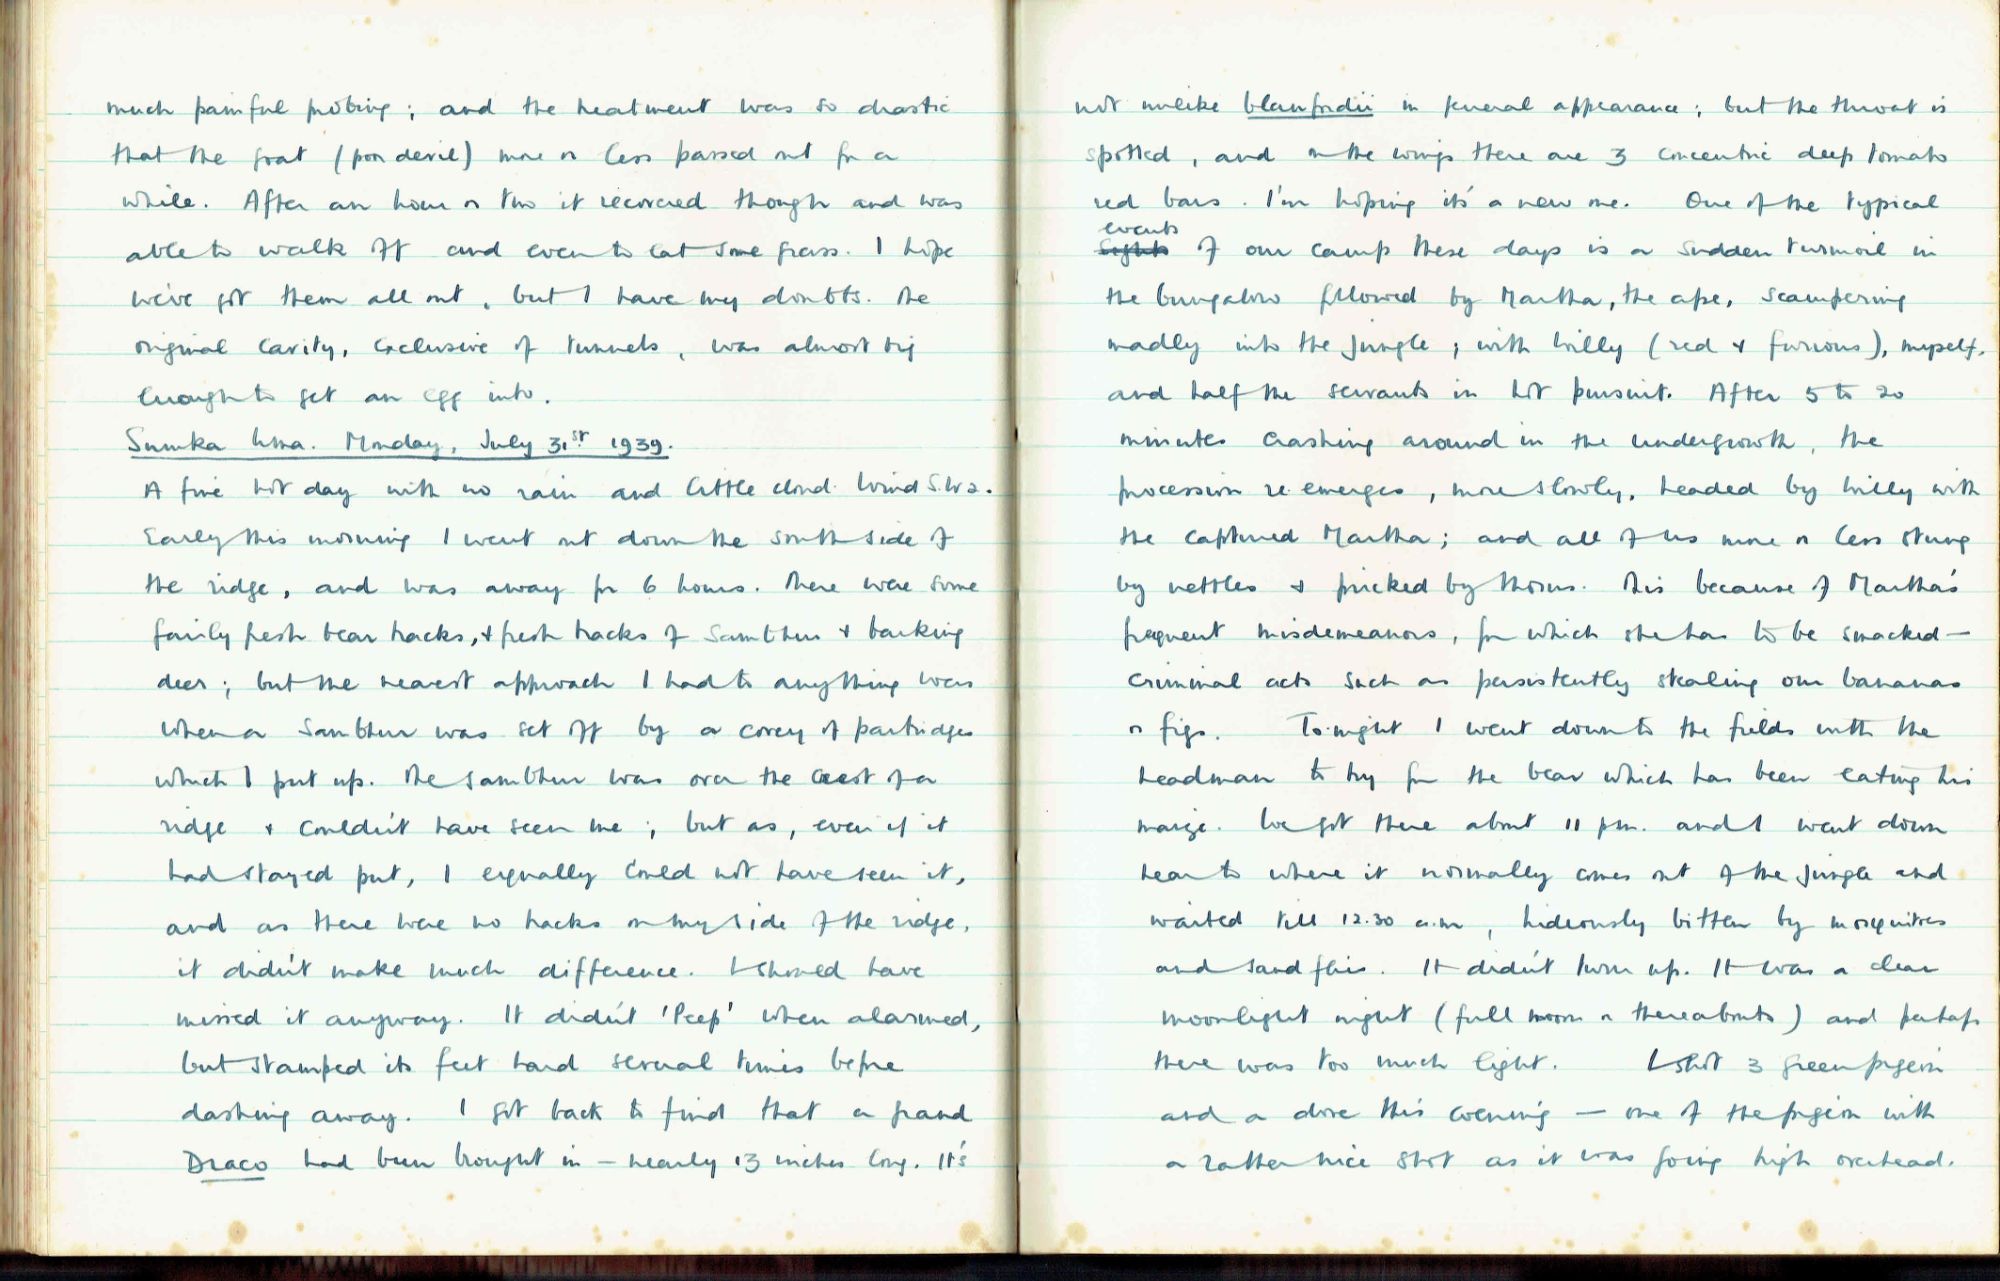 much painful probing; and the treatment was so drastic
that the goat (poor devil) more or less passed out for a
while. After an hour or two it recovered though and was
able to walk off and even to eat some grass. I hope
we've got them all out, but I have my doubts. The
original cavity, exclusive of tunnels, was almost big
enough to get an egg into.
Sumka Uma. Monday, July 31st 1939.
A fine hot day with no rain and little cloud. Wind S.W.2.
Early this morning I went out down the south side of
the ridge, and was away for 6 hours. There were some
fairly fresh bear tracks, & fresh tracks of Sambhur & barking
deer; but the nearest approach I had to anything was
when a Sambhur was set off by a covey of partridges
which I put up. The Sambhur was over the crest of a
ridge & couldn't have seen me; but as, even if it
had stayed put, I equally could not have seen it,
and as there were no tracks on my side of the ridge,
it didn't make much difference. I should have
missed it anyway. It didn't 'Peep' when alarmed,
but stamped its feet hard several times before
dashing away. I got back to find that a grand
Draco had been brought in — nearly 13 inches long. It's
not unlike blanfordii in general appearance; but the throat is
spotted, and on the wings there are 3 concentric deep tomato
red bars. I'm hoping it's a new one. One of the typical
events
sights of our camp these days is a sudden turmoil in
the bungalow followed by Martha, the ape, scampering
madly into the jungle; with Willy (red & furious), myself,
and half the servants in hot pursuit. After 5 to 20
minutes crashing around in the undergrowth, the
procession re-emerges, more slowly, headed by Willy with
the captured Martha; and all of us more or less stung
by nettles & pricked by thorns. This because of Martha's
frequent misdemeanors, for which she has to be smacked —
criminal acts such as persistently stealing our bananas
or figs. To-night I went down to the fields with the
headman to try for the bear which has been eating his
maize. We got there about 11 pm. and I went down
near to where it normally comes out of the jungle and
waited till 12.30 a.m, hideously bitten by mosquitoes
and sandflies. It didn't turn up. It was a clear
moonlight night (full moon or thereabouts) and perhaps
there was too much light. I shot 3 green pigeon
and a dove this evening — one of the pigeon with
a rather nice shot as it was going high overhead.